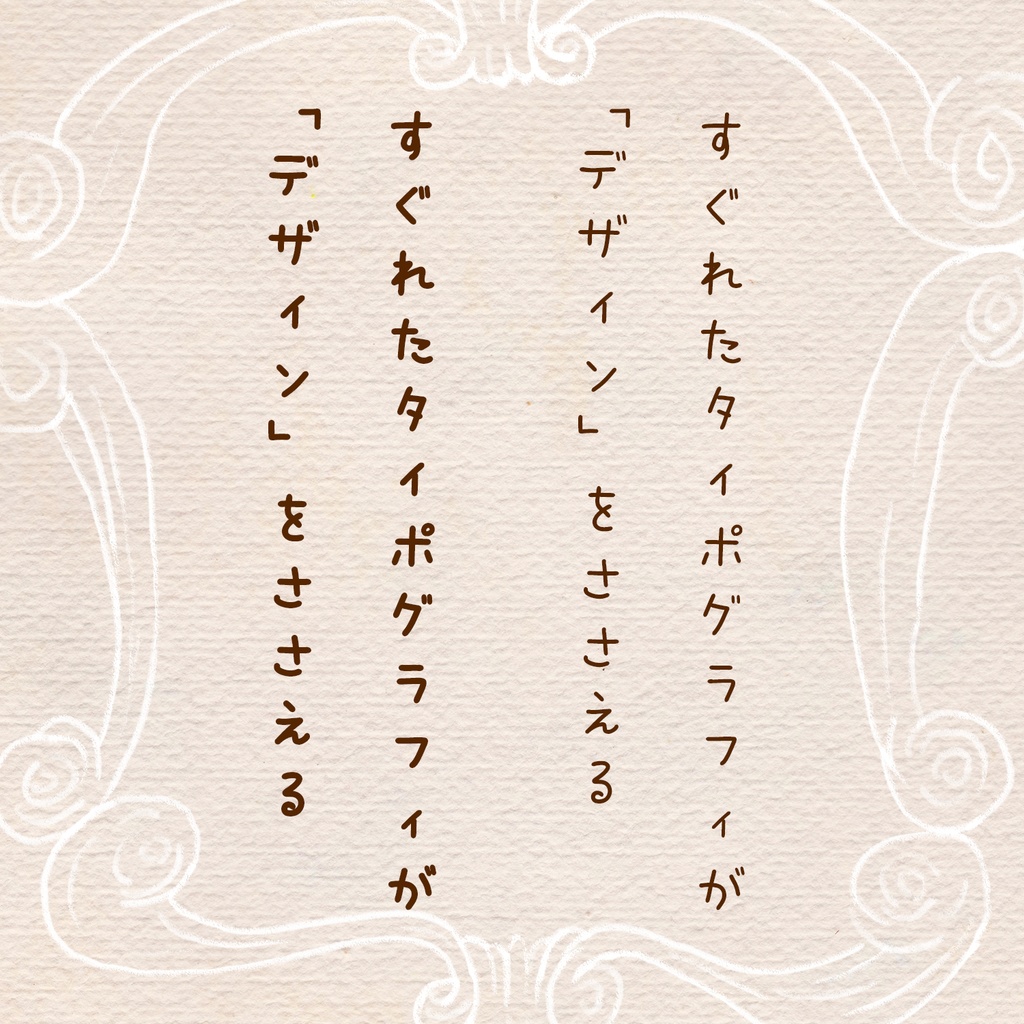 すぐれたタイポグラフィが
「デザイン」をささえる
すぐれたタイポグラフィが
「デザイン」をささえる